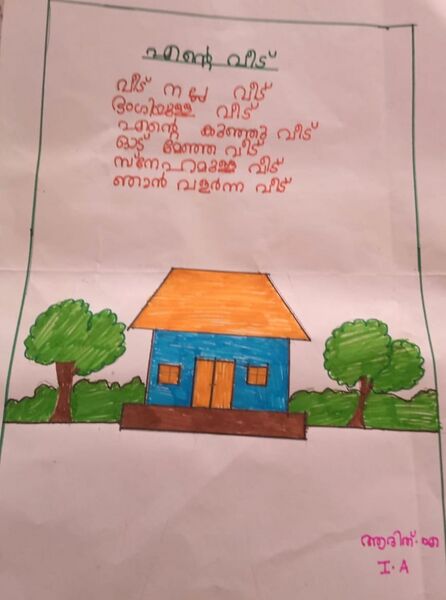 എന്റെ വീട്
വീട് നല്ല വീട്
ഭംഗിയുള്ള വീട്
എന്റെ കുഞ്ഞു വീട്
ഓട് മേഞ്ഞ വീട്
സ്നേഹമുള്ള വീട്
ഞാൻ വളർന്ന വീട്
ആദിത്.എ
I.A